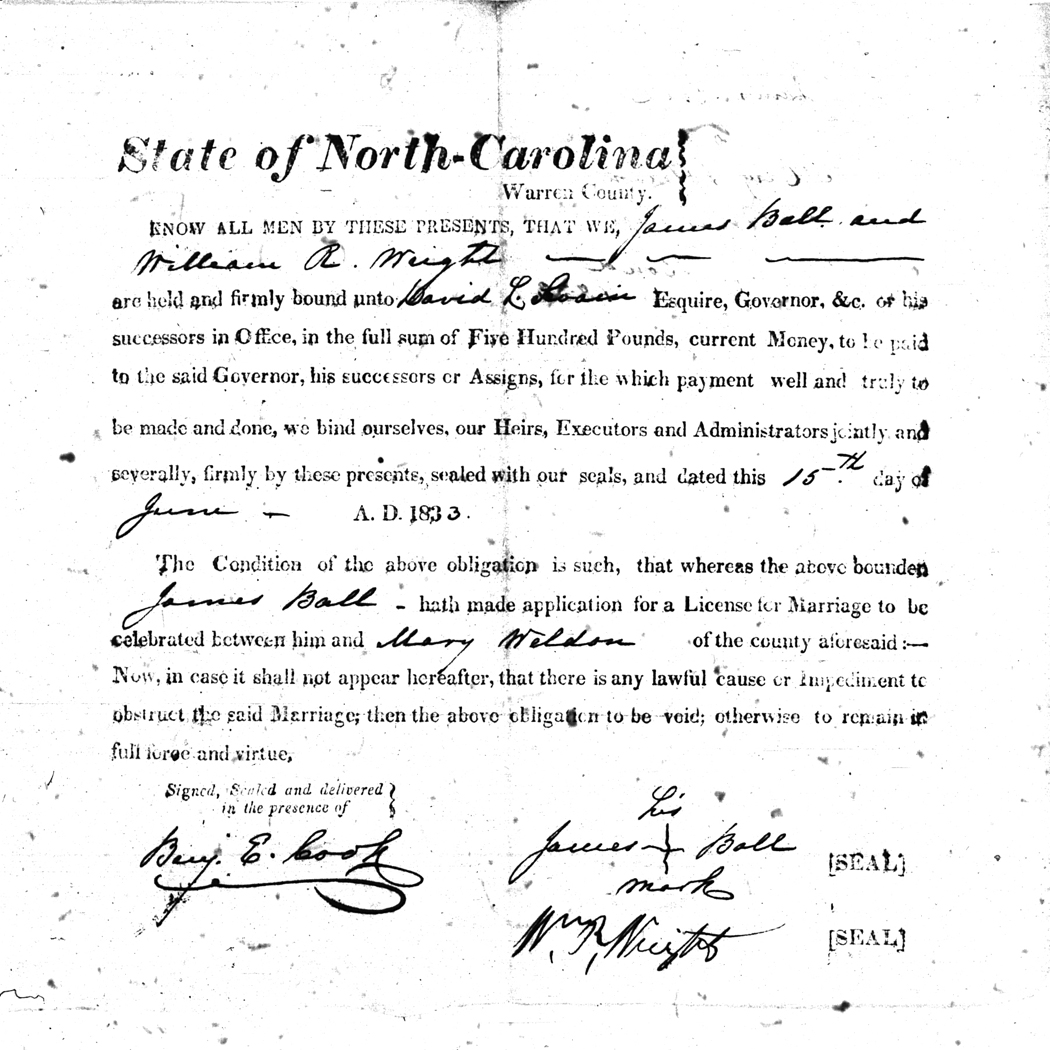 State of North-Carolina
Warren County.
KNOW ALL MEN BY THESE PRESENTS, THAT WE, James Ball and
William R. Wright
are held and firmly bound unto David L. Swain Esquire, Governor, &c. or his
successors in Office, in the full sum of Five Hundred Pounds, current Money, to be paid
to the said Governor, his successors or Assigns, for the which payment well and truly to
be made and done, we bind ourselves, our Heirs, Executors and Administrators jointly and
severally, firmly by these presents, sealed with our seals, and dated this 15th day of
June - A. D. 1833.
The Condition of the above obligation is such, that whereas the above bounden
James Ball - hath made application for a License for Marriage to be
celebrated between him and Mary Weldon of the county aforesaid:—
Now, in case it shall not appear hereafter, that there is any lawful cause or Impediment to
obstruct the said Marriage; then the above obligation to be void; otherwise to remain in
full force and virtue,
Signed, Sealed and delivered
in the presence of
Benj. E. Cook
his
James + Ball [SEAL]
mark
Wm R. Wright [SEAL]